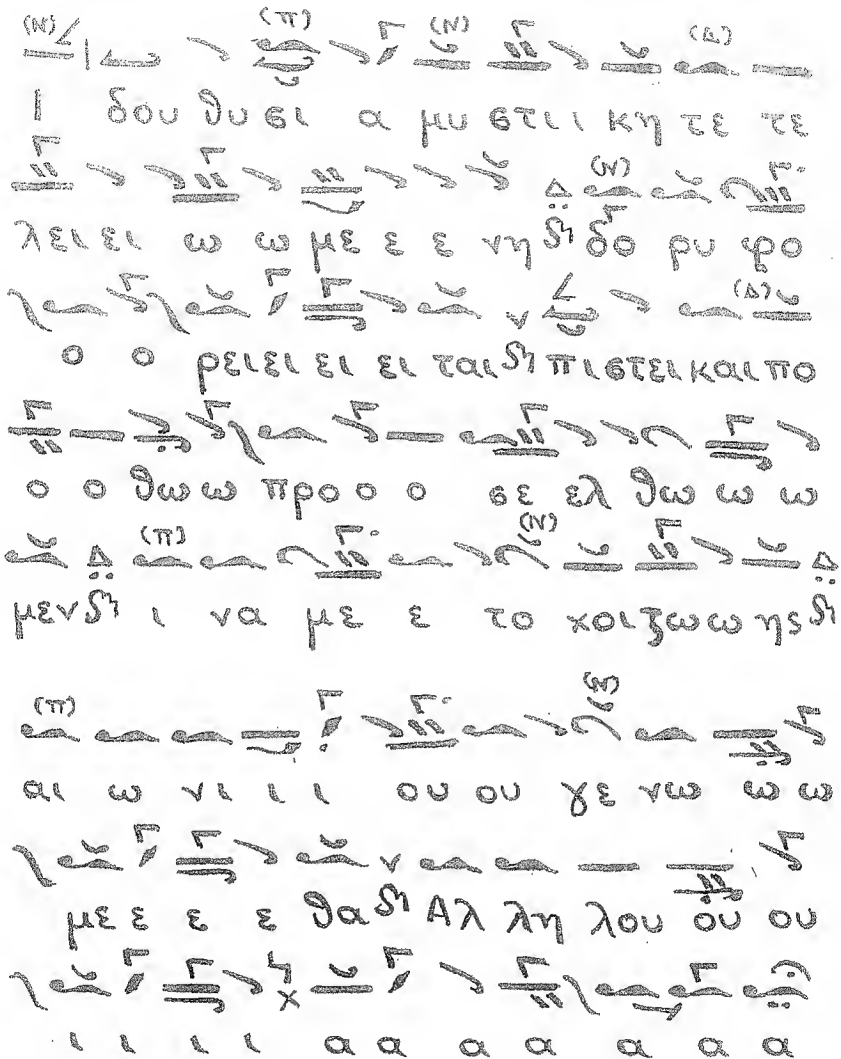 (Ν) (π) (Ν) (Δ)
Ι δου θυ σι α μυ στι ι κη τε τε
(Ν)
λει ει ω ω με ε ε νη δη δο ρυ φο
(Δ)
ο ο ρει ει ει ει ται δη πι στει και πο
ο ο θω ω προ ο ο σε ελ θω ω ω
(π) (Ν)
μεν δη ι να με ε το χοι ζω ω ης δη
(π) (Ν)
αι ω νι ι ι ου ου γε νω ω ω
με ε ε ε θα δη Αλ λη λου ου ου
ι ι ι ι α α α α α α α